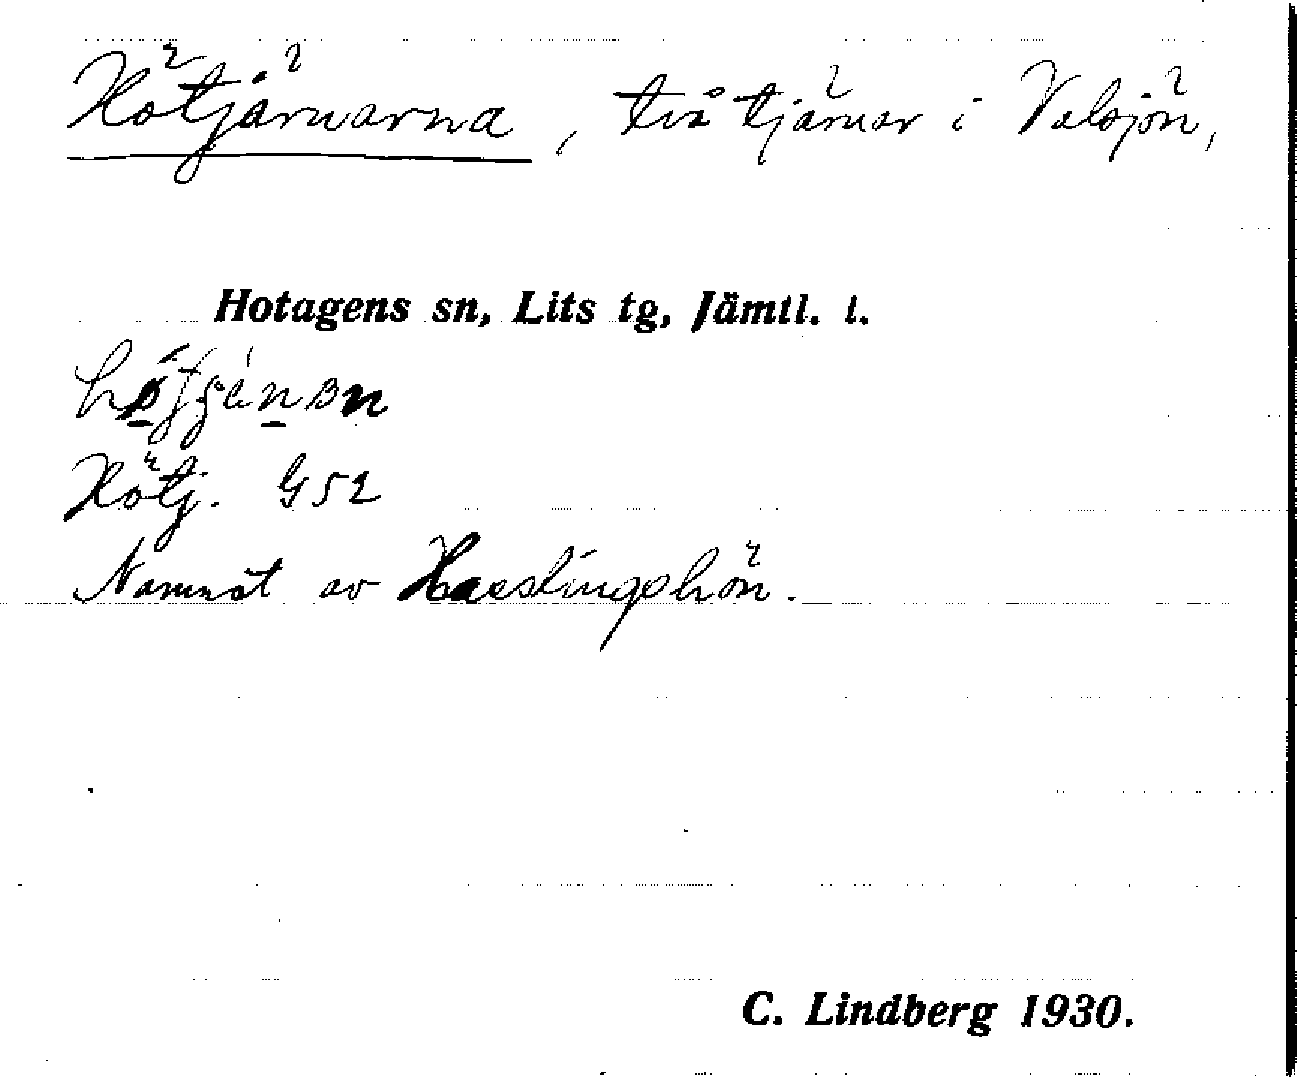 Hötjärnarna, två tjärnar i Valsjön,
Hotagens sn, Lits tg, Jämtl. l.
Hötj. G52
Namnet av Hasslingshön.
C. Lindberg 1930.